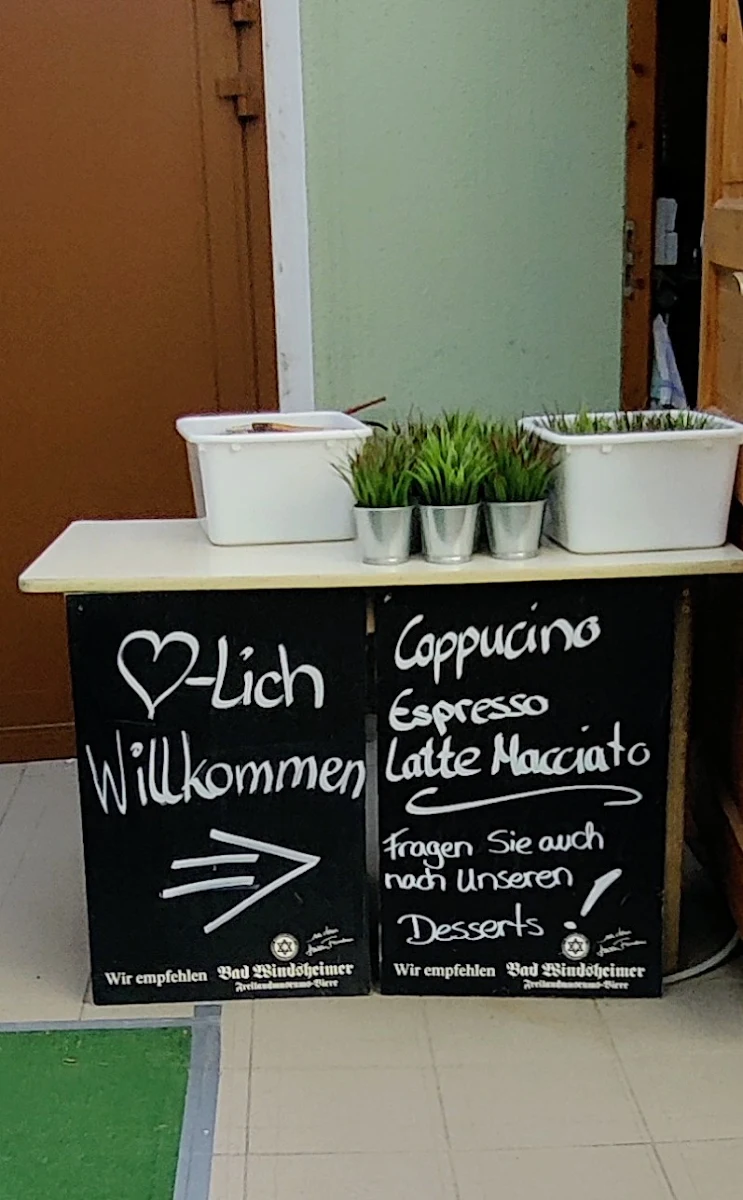 ♡-Lich
Willkommen
Wir empfehlen Bad Windsheimer
Freilandmuseums-Biere
Coppucino
Espresso
Latte Macciato
Fragen Sie auch
nach Unseren
Desserts!
Wir empfehlen Bad Windsheimer
Freilandmuseums-Biere